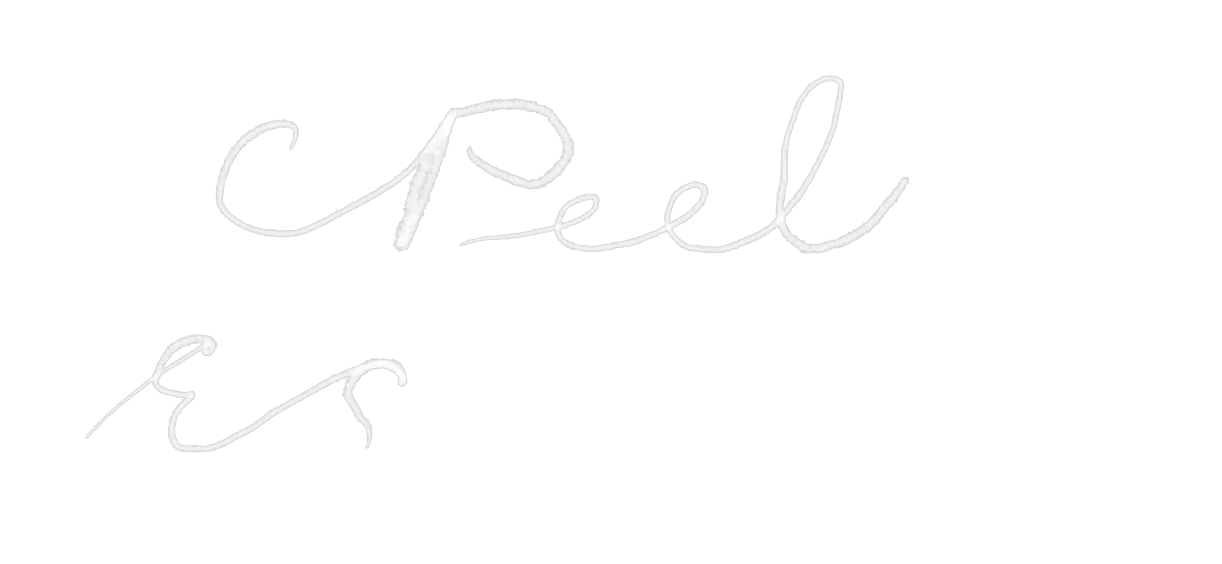 Peel
Er